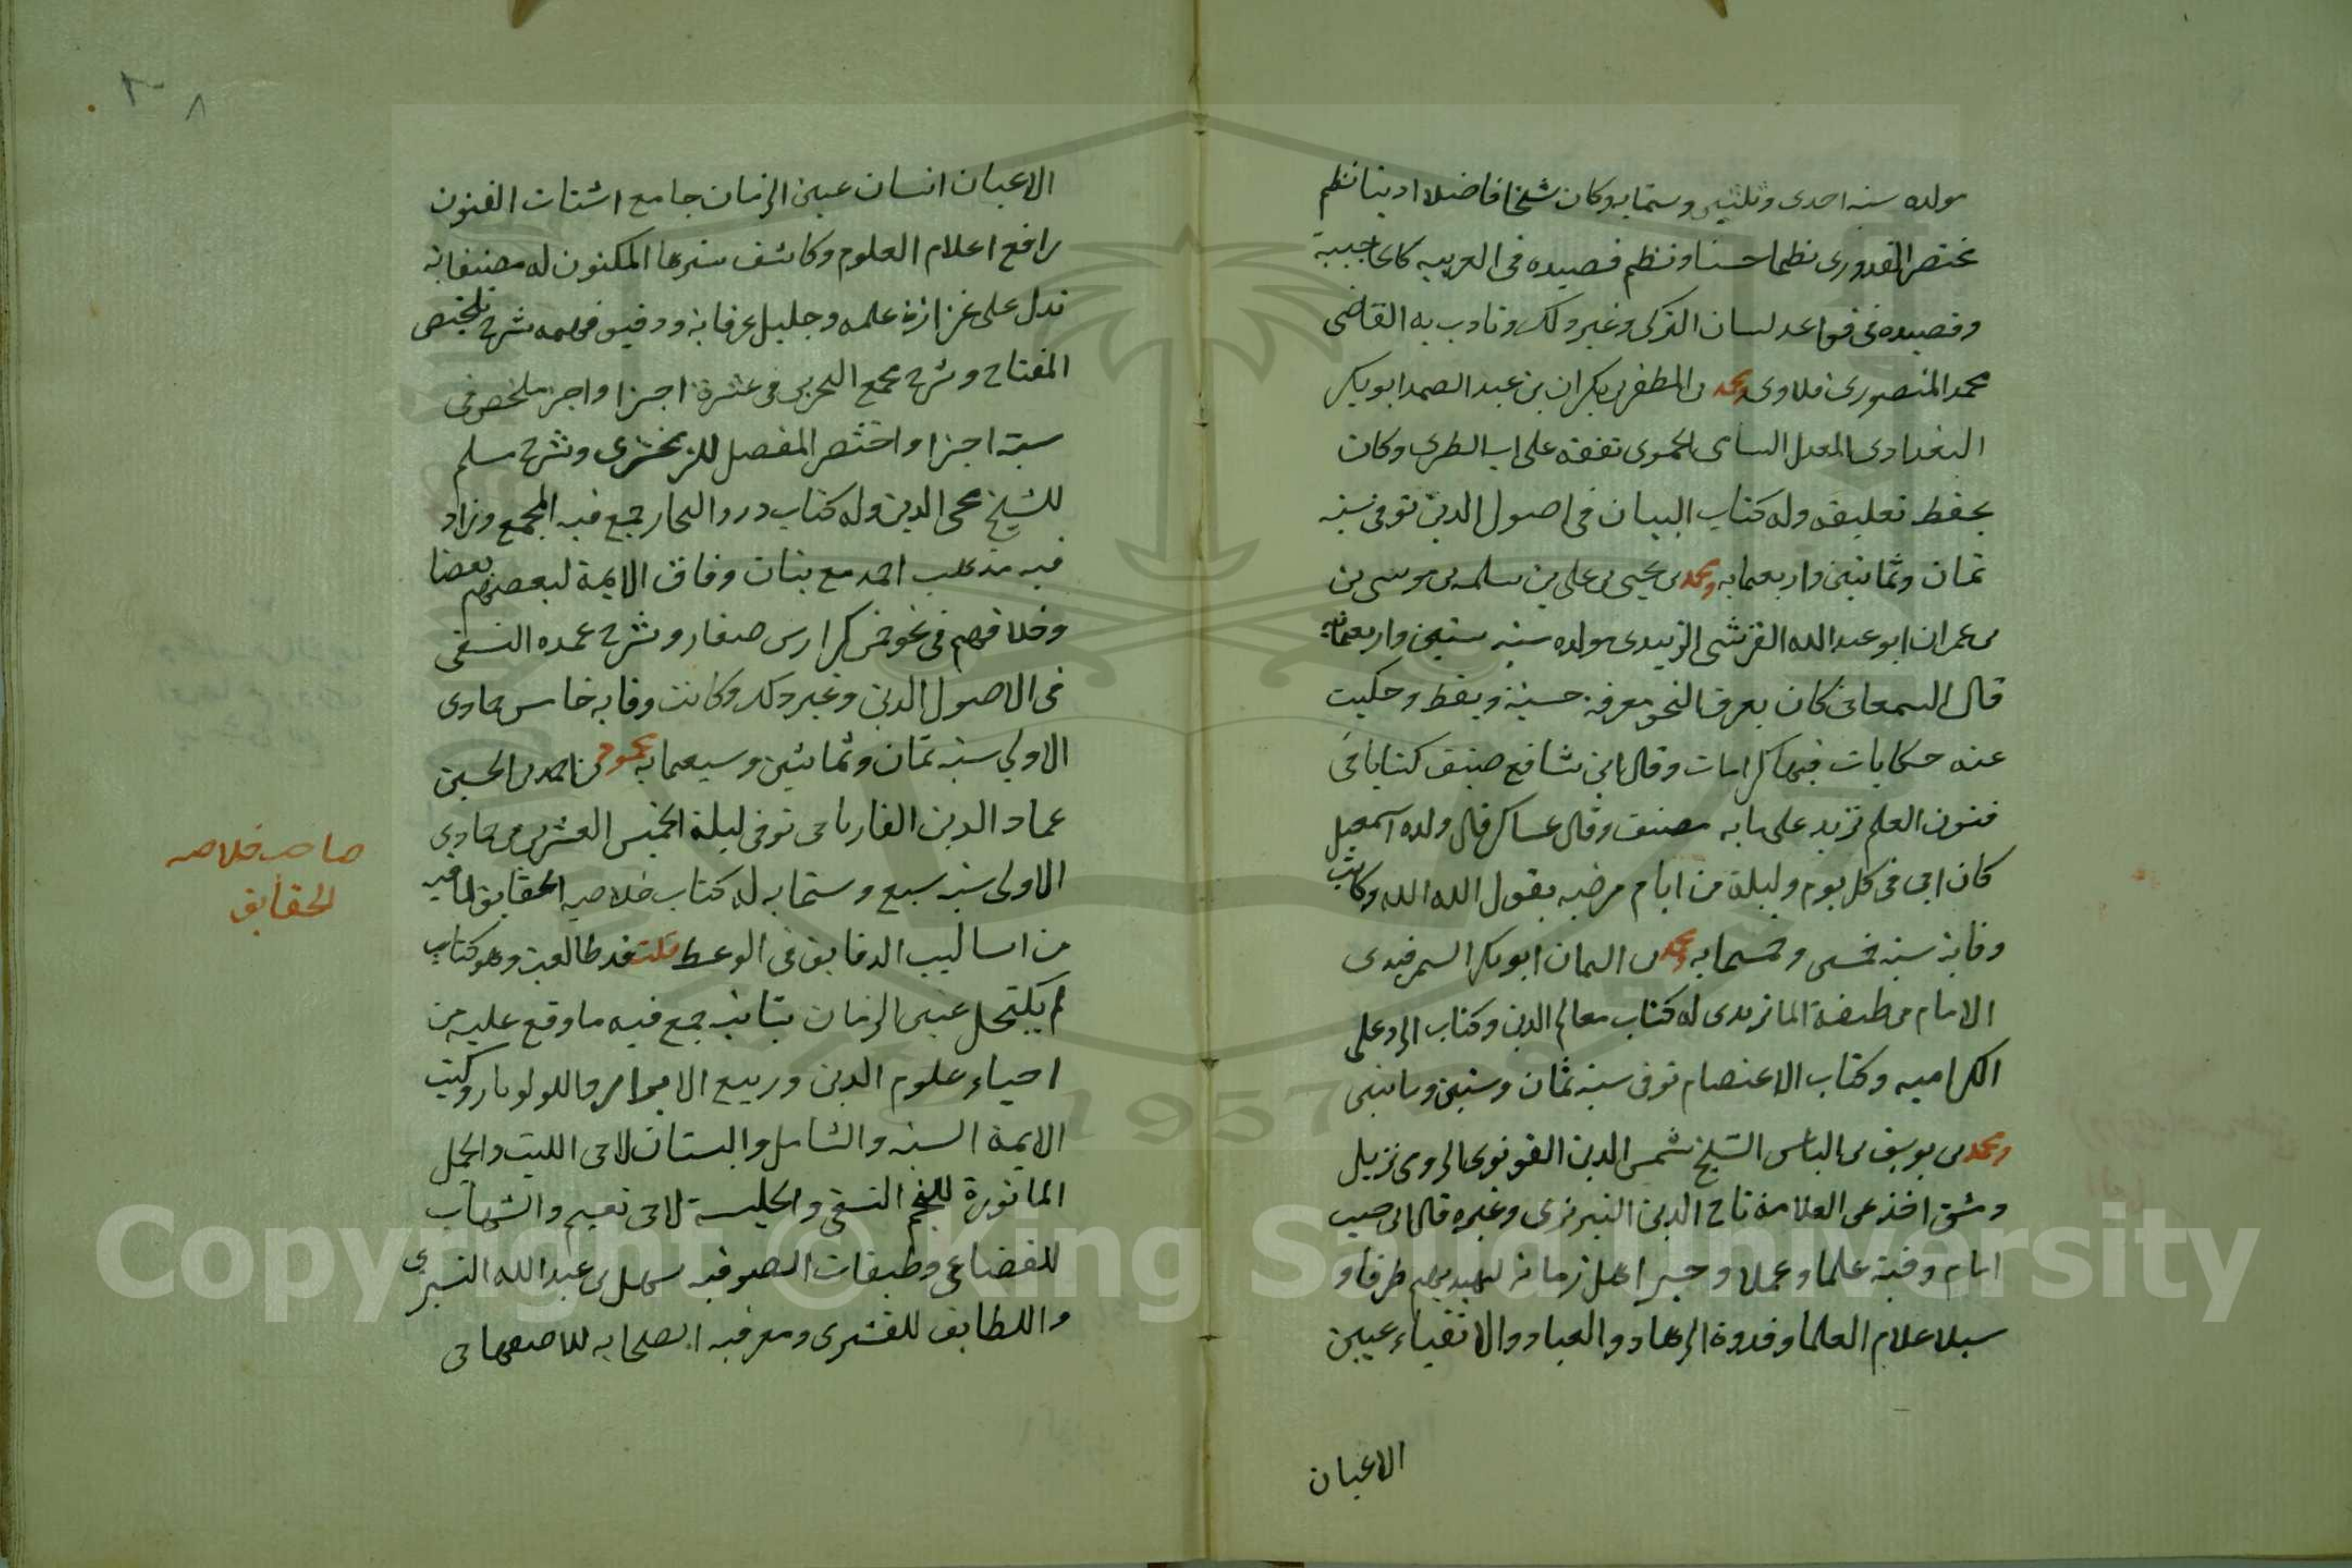 مولده سنه احدى وثلثين وستمايه وكان شيخا فاضلا اديبا نظم
مختصر القدورى نظما حسنا ونظم قصيده فى العربيه كالحاجبية
وقصيده فى قواعد لسان التركى وغير ذلك وتادب به القاضى
محمد المنصورى ومحمد بن المظفر بن بكران بن عبد الصمد ابو بكر
البغدادى المعدل الشامى الحموى تفقه على ابى الطيب وكان
يحفظ تعليقه وله كتاب البيان فى اصول الدين توفى سنه
ثمان وثمانين واربعمايه ومحمد بن يحيى بن على بن مسلمه بن موسى بن
بن عمران ابو عبد الله القرشى الزبيدى مولده سنه ستين واربعمائه
قال السمعانى كان يعرف النحو معرفة حسنة ويعظ وحكيت
عنه حكايات فيها كرامات وقال ابن شافع صنف كتابا فى
فنون العلم تزيد على مايه مصنف وقال عساكر قال ولده اسمعيل
كان ابى فى كل يوم وليلة من ايام مرضه يقول الله الله وكانت
وفاته سنه خمس وخمسمايه ومحمد بن اليمان ابو بكر السمرقندى
الامام من طبقة الماتريدى له كتاب معالم الدين وكتاب الرد على
الكراميه وكتاب الاعتصام توفى سنه ثمان وستين ومايتين
ومحمد بن يوسف بن الياس الشيخ شمس الدين القونوى الرومى نزيل
دمشق اخذ عن العلامة تاج الدين التبريزى وغيره قال ابن حبيب
امام وقته علما وعملا وخير اهل زمانه طرقا و
سبلا علام العلما وقدوة الزهاد والعباد والاتقياء عين
الاعيان
الاعيان انسان عين الزمان جامع اشتات الفنون
رافع اعلام العلوم وكاشف سترها المكنون له مصنفاته
تدل على غزارة علمه وجليل عرفانه ودقيق فهمه شرح تلخيص
المفتاح وشرح مجمع البحرين فى عشرة اجزا واخر ملخص فى
ستة اجزا واختصر المفصل للزمخشرى وشرح مسلم
للشيخ محى الدين وله كتاب درر البحار جمع فيه المجمع وزاد
فيه مذهب احمد مع بيان وفاق الايمة لبعضهم بعضا
وخلافهم فى نحو خمس كراريس صغار وشرح عمده النسفى
فى الاصول الدين وغير ذلك وكانت وفاته خامس جمادى
الاولى سنه ثمان وثمانين وسبعمايه محمود بن احمد بن الحسين
عماد الدين الفاريابى توفى ليلة الخميس العشرين من جمادى
الاولى سنه سبع وستمايه له كتاب خلاصه الحقايق لما فيه
من اساليب الدقايق فى الوعظ قلت قد طالعته وهو كتاب
لم يكتحل عين الزمان بثانيه جمع فيه ما وقع عليه من
احياء علوم الدين وربيع الابرار واللولويات وكتب
الايمة الستة والشامل والبستان لابى الليث والجمل
الماثورة للنجم النسفى والحلية لابى نعيم والشهاب
للقضاعى وطبقات الصوفيه سهل بن عبد الله التسترى
واللطايف للقشيرى ومعرفه الصحابه للاصفهانى
صاحب خلاصه
الحقايق